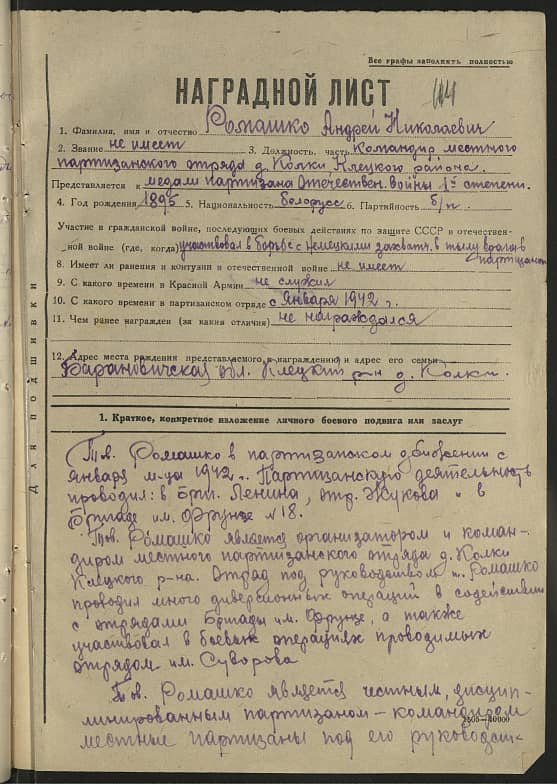 Все графы заполнять полностью
НАГРАДНОЙ ЛИСТ
1. Фамилия, имя и отчество Ромашко Андрей Николаевич
2. Звание не имеет 3. Должность, часть Командир местного
партизанского отряда д. Колки Клецкого района.
Представляется к медали партизана Отечествен. войны 1й степени.
4. Год рождения 1895 5. Национальность белорусс 6. Партийность б/п.
Участие в гражданской войне, последующих боевых действиях по защите СССР в отечествен-
ной войне (где, когда) участвовал в борьбе с немецкими захватч. в тылу врага в
партизанах
8. Имеет ли ранения и контузии в отечественной войне не имеет
9. С какого времени в Красной Армии не служил
10. С какого времени в партизанском отряде с Января 1942 г.
11. Чем ранее награжден (за какия отличия) не награждался
12. Адрес места рождения представляемого к награждению и адрес его семьи
Барановичская обл. Клецкий р-н д. Колки.
Для подшивки
1. Краткое, конкретное изложение личного боевого подвига или заслуг
Тов. Ромашко в партизанском движении с
января м-ца 1942 г. Партизанскую деятельность
проводил: в Бриг. Ленина, отр. Жукова и в
Бригаде им. Фрунзе №18.
Тов. Ромашко является организатором и коман-
диром местного партизанского отряда д. Колки
Клецкого р-на. Отряд под руководством т. Ромашко
проводил много диверсионных операций в содействии
с отрядами Бригады им. Фрунзе, а также
участвовал в боевых операциях проводимых
отрядом им. Суворова
Тов. Ромашко является честным, дисцип-
линированным партизаном – командиром
местные партизаны под его руководст-